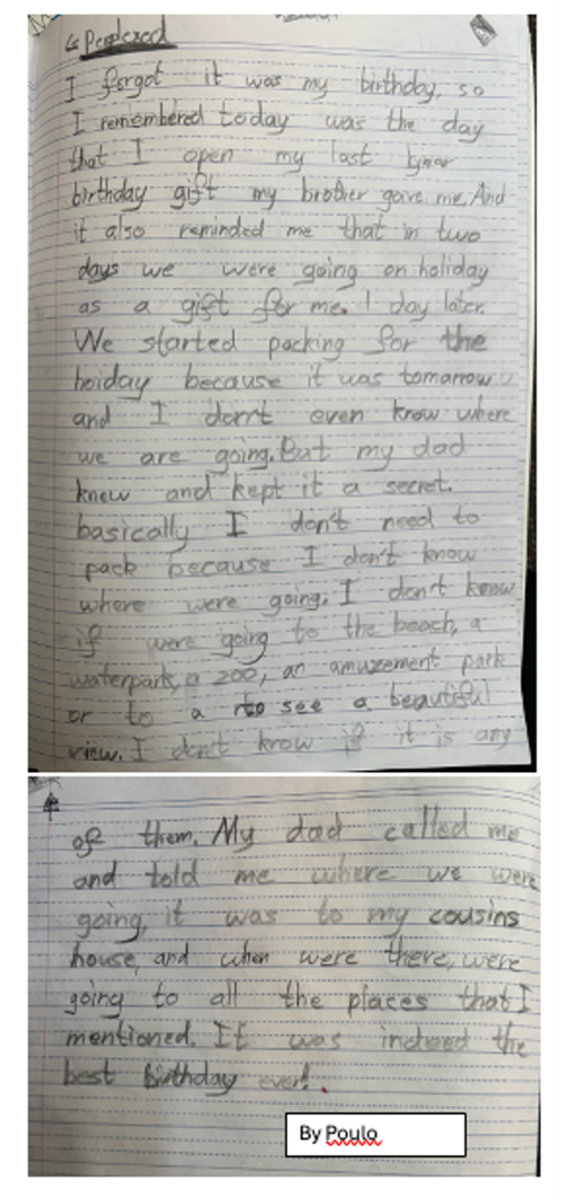 Perplexed
I forgot it was my birthday, so
I remembered today was the day
that I open my last
birthday gift my brother gave me. And
it also reminded me that in two
days we were going on holiday
as a gift for me. 1 day later.
We started packing for the
holday because it was tomarrow
and I don't even know where
we are going. But my dad
knew and kept it a secret.
basically I don't need to
pack because I don't know
where were going. I don't know
if were going to the beach, a
waterpark, a zoo, an amuzement park
or to a to see a beautiful
view. I don't know if it is any
of them. My dad called me
and told me where we were
going, it was to my cousins
house, and when were there, were
going to all the places that I
mentioned. It was indeed the
best birthday ever!
By Poulo